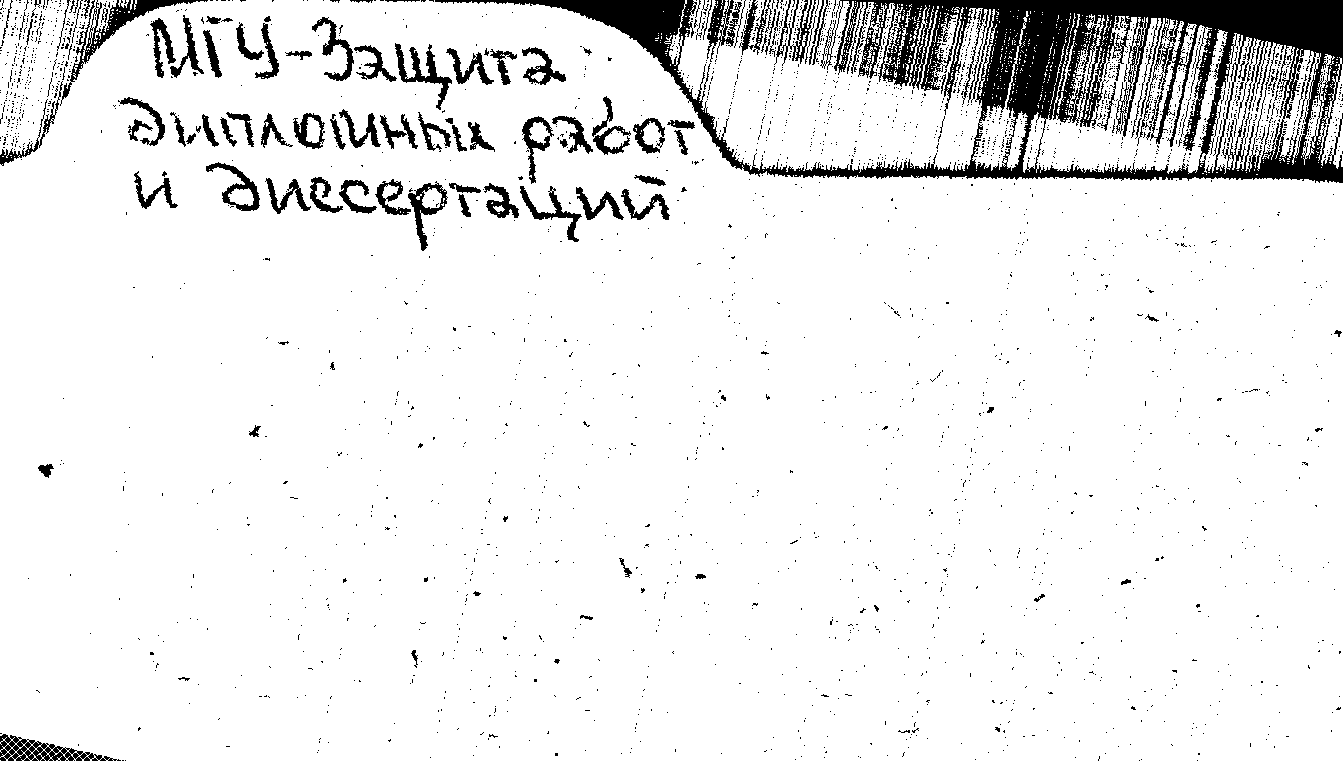 МГУ-Защита
дипломных работ
и диссертаций